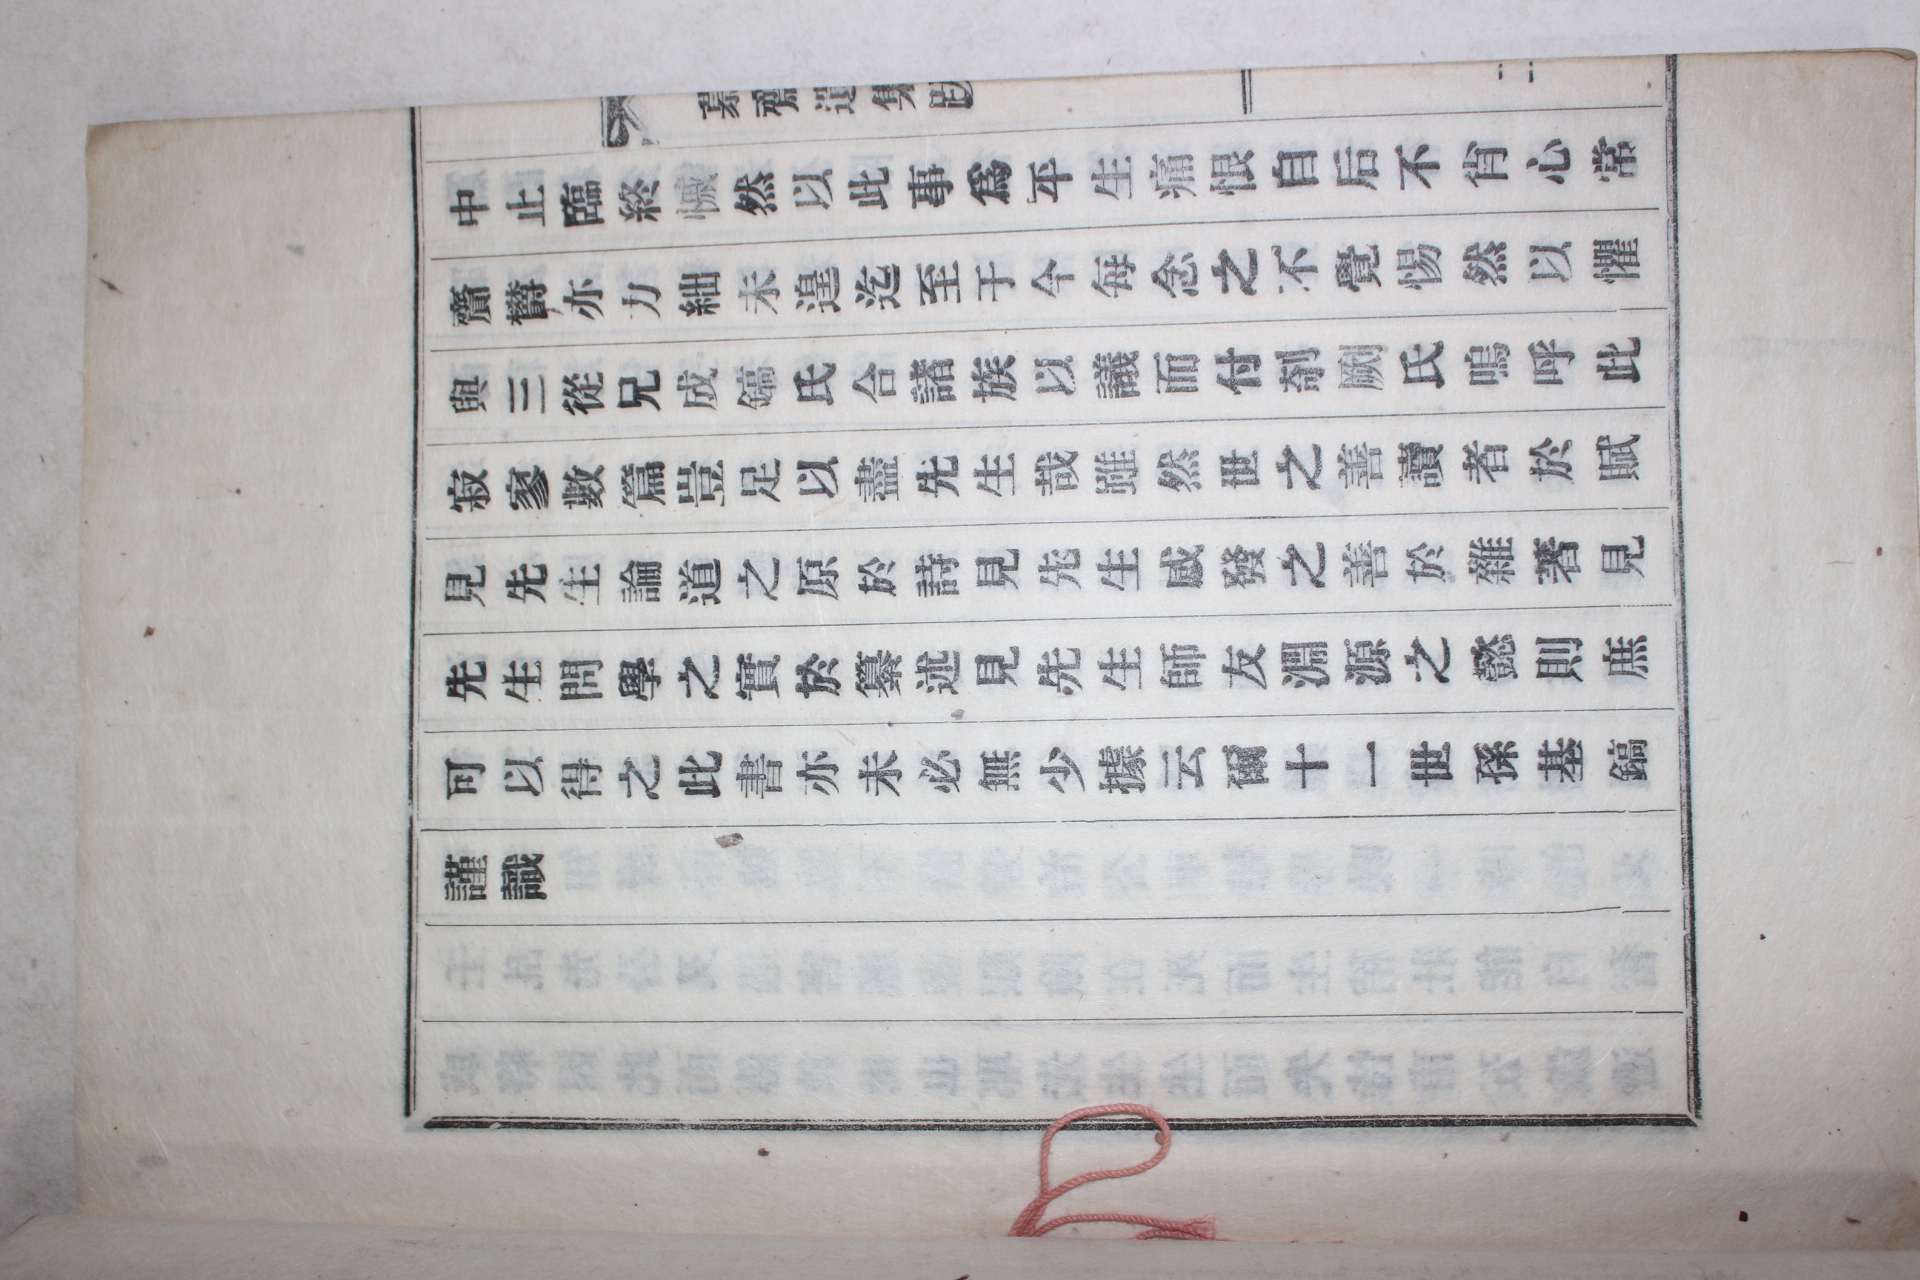 齋遺集跋
中止臨終慽然以此事爲平生痛恨自后不肖心常
齎鬱亦力絀未遑迄至于今每念之不覺惕然以懼
與三從兄成鎬氏合諸族以議而付剞劂氏嗚呼此
寂寥數篇豈足以盡先生哉雖然世之善讀者於賦
見先生論道之原於詩見先生感發之善於雜著見
先生問學之實於纂述見先生師友淵源之懿則庶
可以得之此書亦未必無少據云爾十一世孫基鎬
謹識